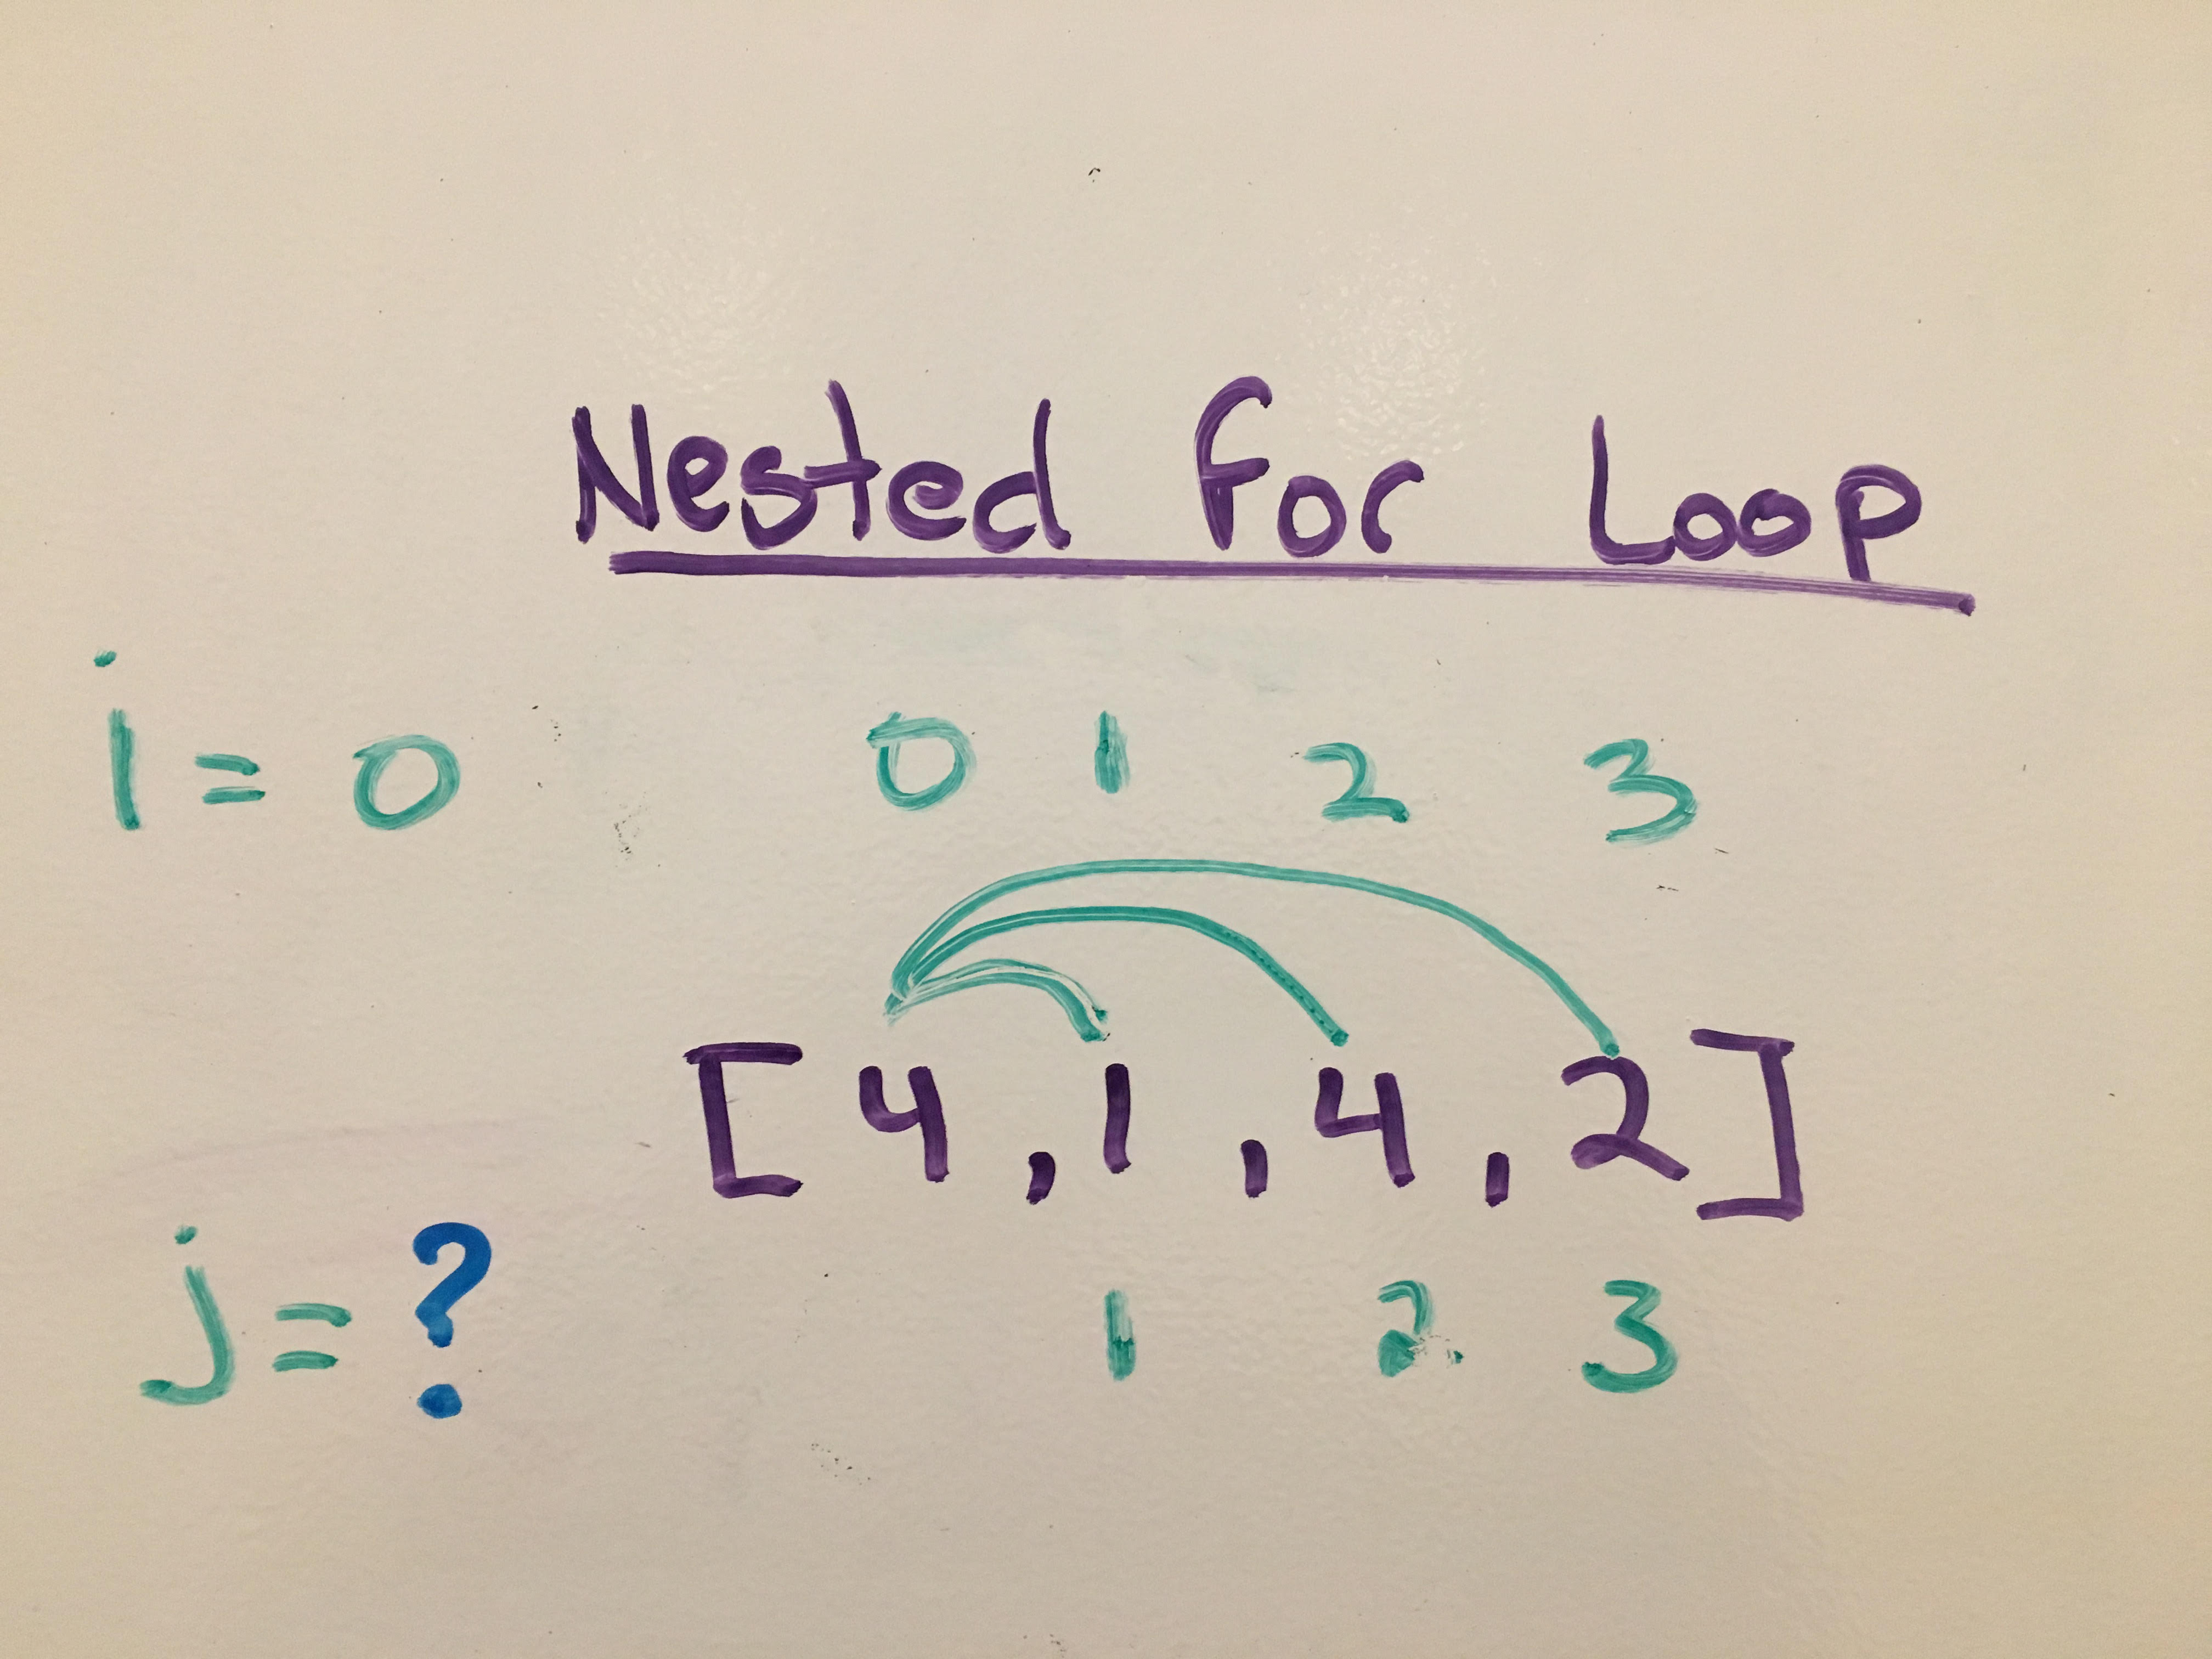 Nested for Loop
i = 0 0 1 2 3
[4, 1, 4, 2]
j = ? 1 2 3